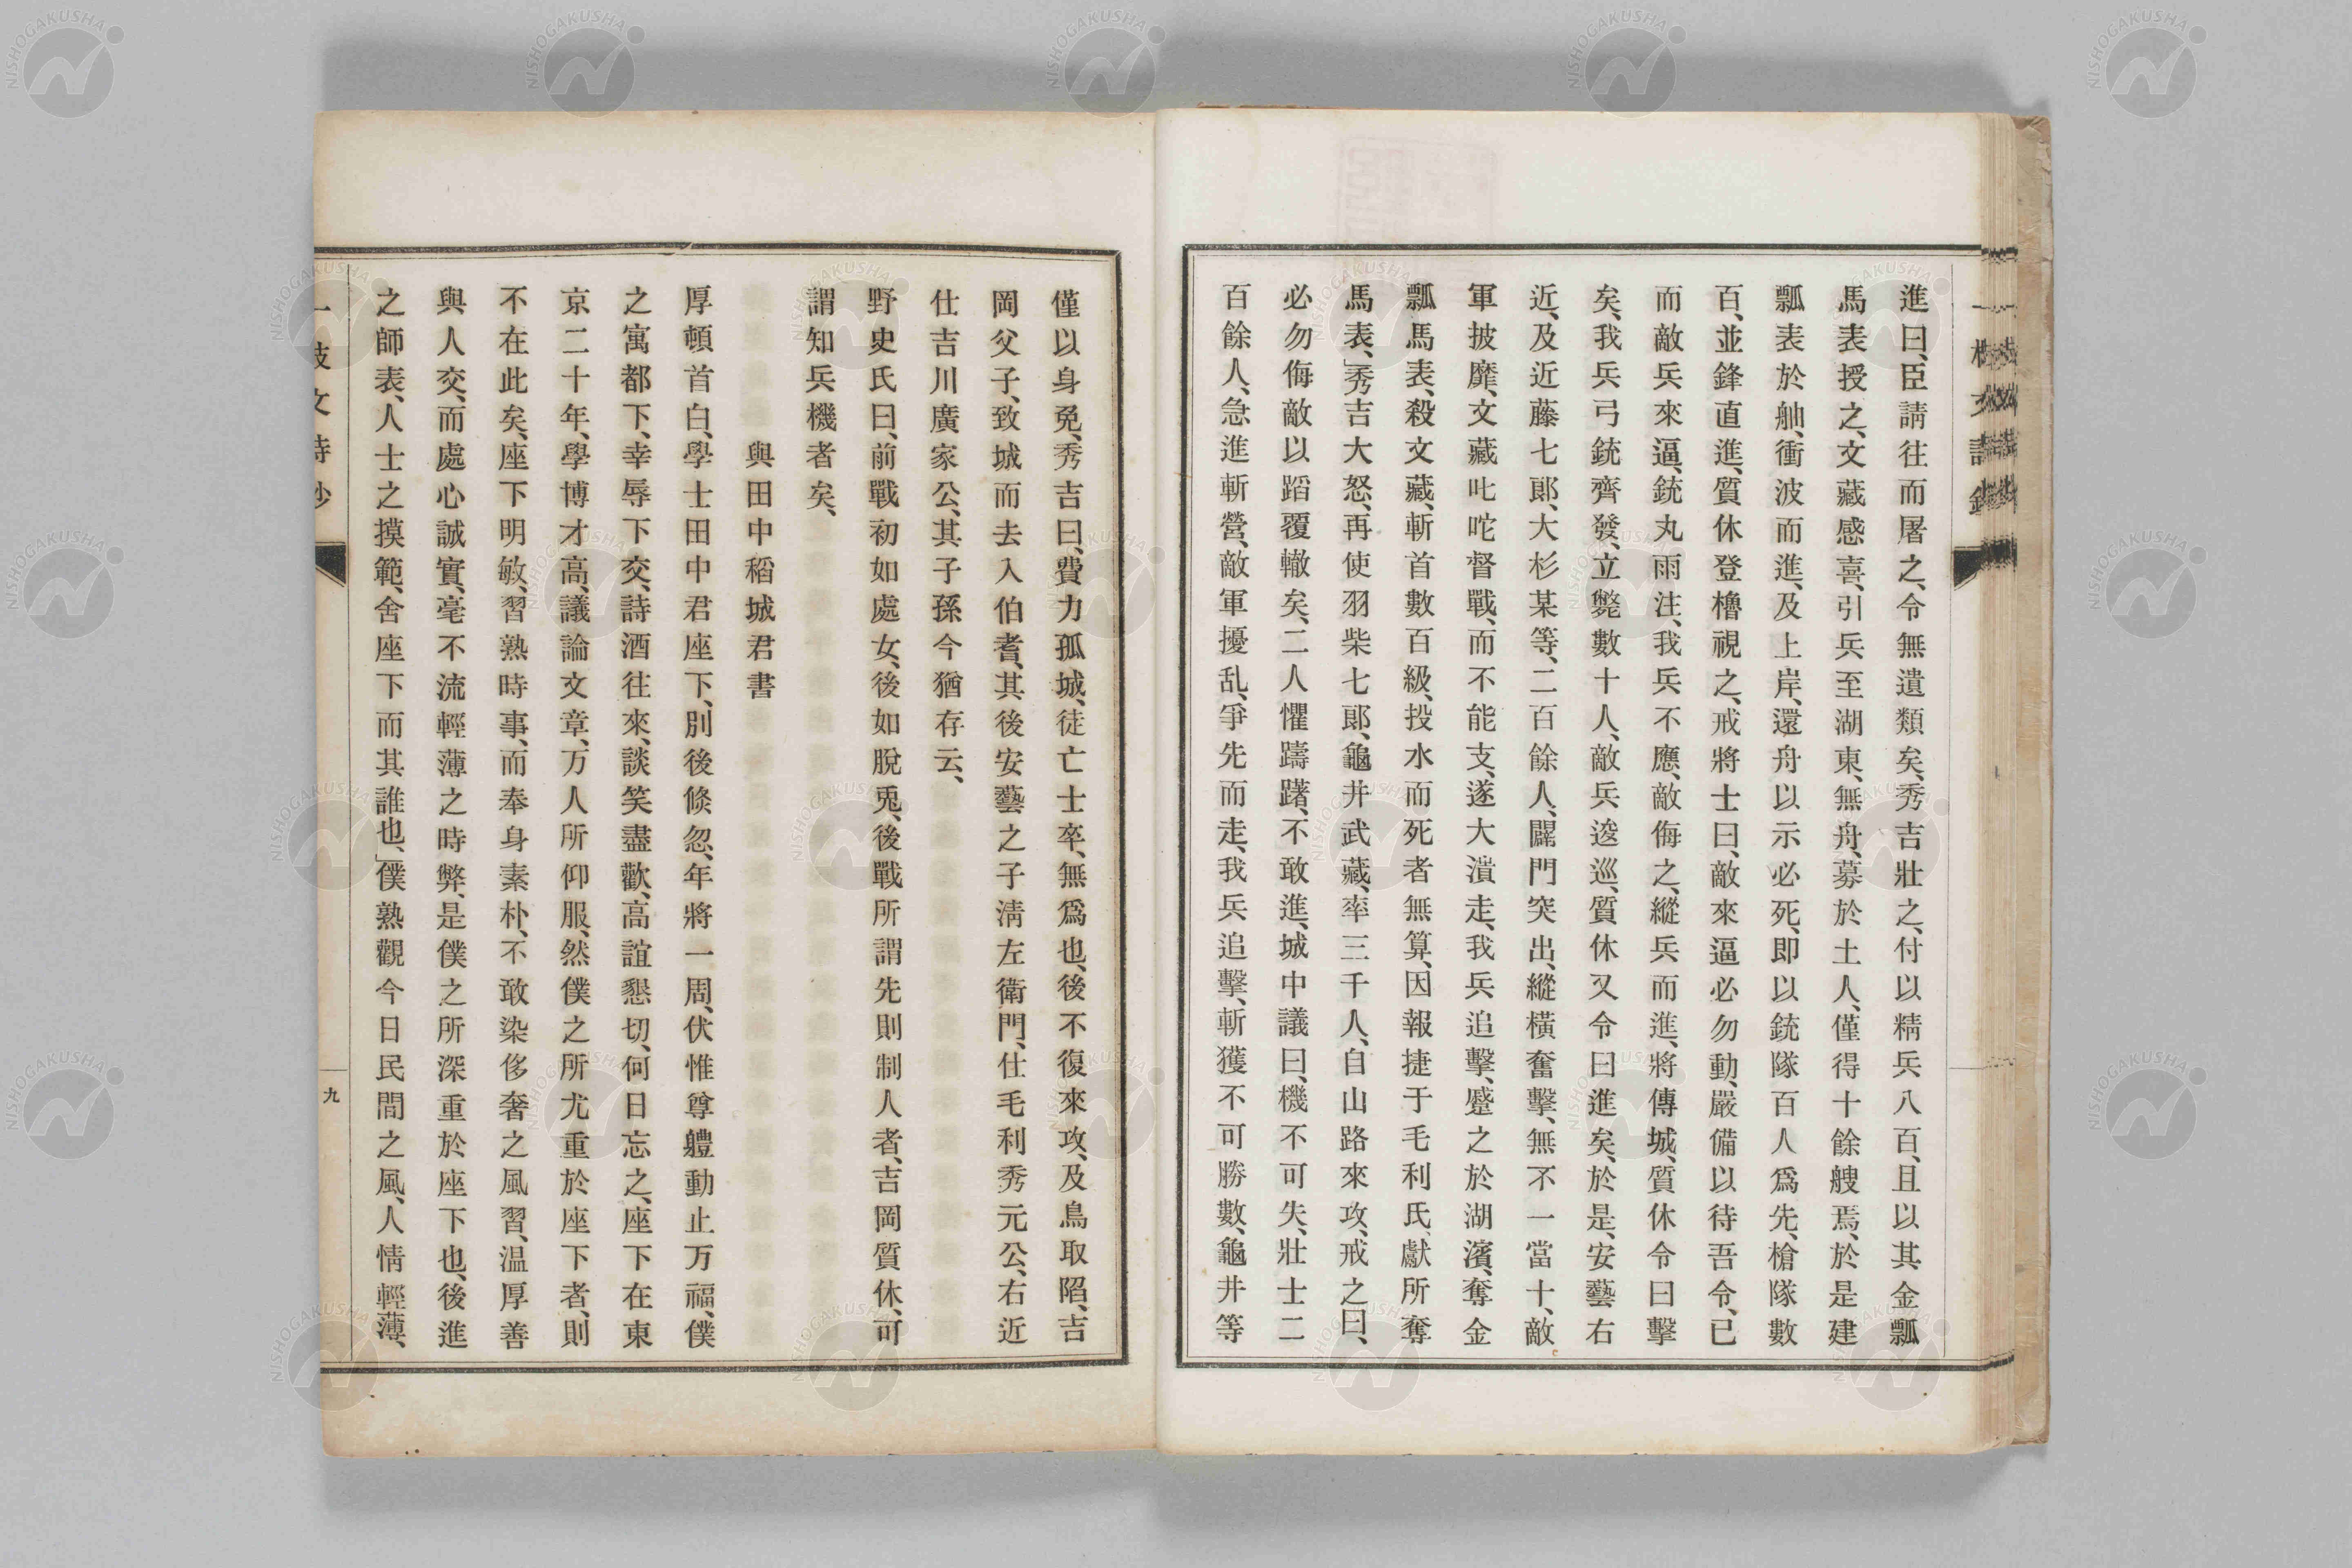 進曰、臣請往而屠之、令無遺類矣、秀吉壯之、付以精兵八百、且以其金瓢
馬表授之、文藏感喜、引兵至湖東、無舟、募於土人、僅得十餘艘焉、於是建
瓢表於舳、衝波而進、及上岸、還舟以示必死、即以銃隊百人爲先、槍隊數
百、並鋒直進、質休登櫓視之、戒將士曰、敵來逼必勿動、嚴備以待吾令、已
而敵兵來逼、銃丸雨注、我兵不應、敵侮之、縱兵而進、將傳城、質休令曰擊
矣、我兵弓銃齊發、立斃數十人、敵兵逡巡、質休又令曰進矣、於是、安藝右
近、及近藤七郞、大杉某等、二百餘人、闢門突出、縱橫奮擊、無不一當十、敵
軍披靡、文藏叱咤督戰、而不能支、遂大潰走、我兵追擊、蹙之於湖濱、奪金
瓢馬表、殺文藏、斬首數百級、投水而死者無算、因報捷于毛利氏、獻所奪
馬表、」秀吉大怒、再使羽柴七郞、龜井武藏、率三千人、自山路來攻、戒之曰、
必勿侮敵以蹈覆轍矣、二人懼躊躇、不敢進、城中議曰、機不可失、壯士二
百餘人、急進斬營、敵軍擾乱、爭先而走、我兵追擊、斬獲不可勝數、龜井等
僅以身免、秀吉曰、費力孤城、徒亡士卒、無爲也、後不復來攻、及鳥取陷、吉
岡父子、致城而去入伯耆、其後安藝之子淸左衛門、仕毛利秀元公、右近
仕吉川廣家公、其子孫今猶存云、
野史氏曰、前戰初如處女、後如脫兎、後戰所謂先則制人者、吉岡質休、可
謂知兵機者矣、
與田中稻城君書
厚頓首白、學士田中君座下、別後倏忽、年將一周、伏惟尊軆動止万福、僕
之寓都下、幸辱下交、詩酒往來、談笑盡歡、高誼懇切、何日忘之、座下在東
京二十年、學博才高、議論文章、万人所仰服、然僕之所尤重於座下者、則
不在此矣、座下明敏、習熟時事、而奉身素朴、不敢染侈奢之風習、温厚善
與人交、而處心誠實、毫不流輕薄之時弊、是僕之所深重於座下也、後進
之師表、人士之摸範、舍座下而其誰也、」僕熟觀今日民間之風、人情輕薄、
九